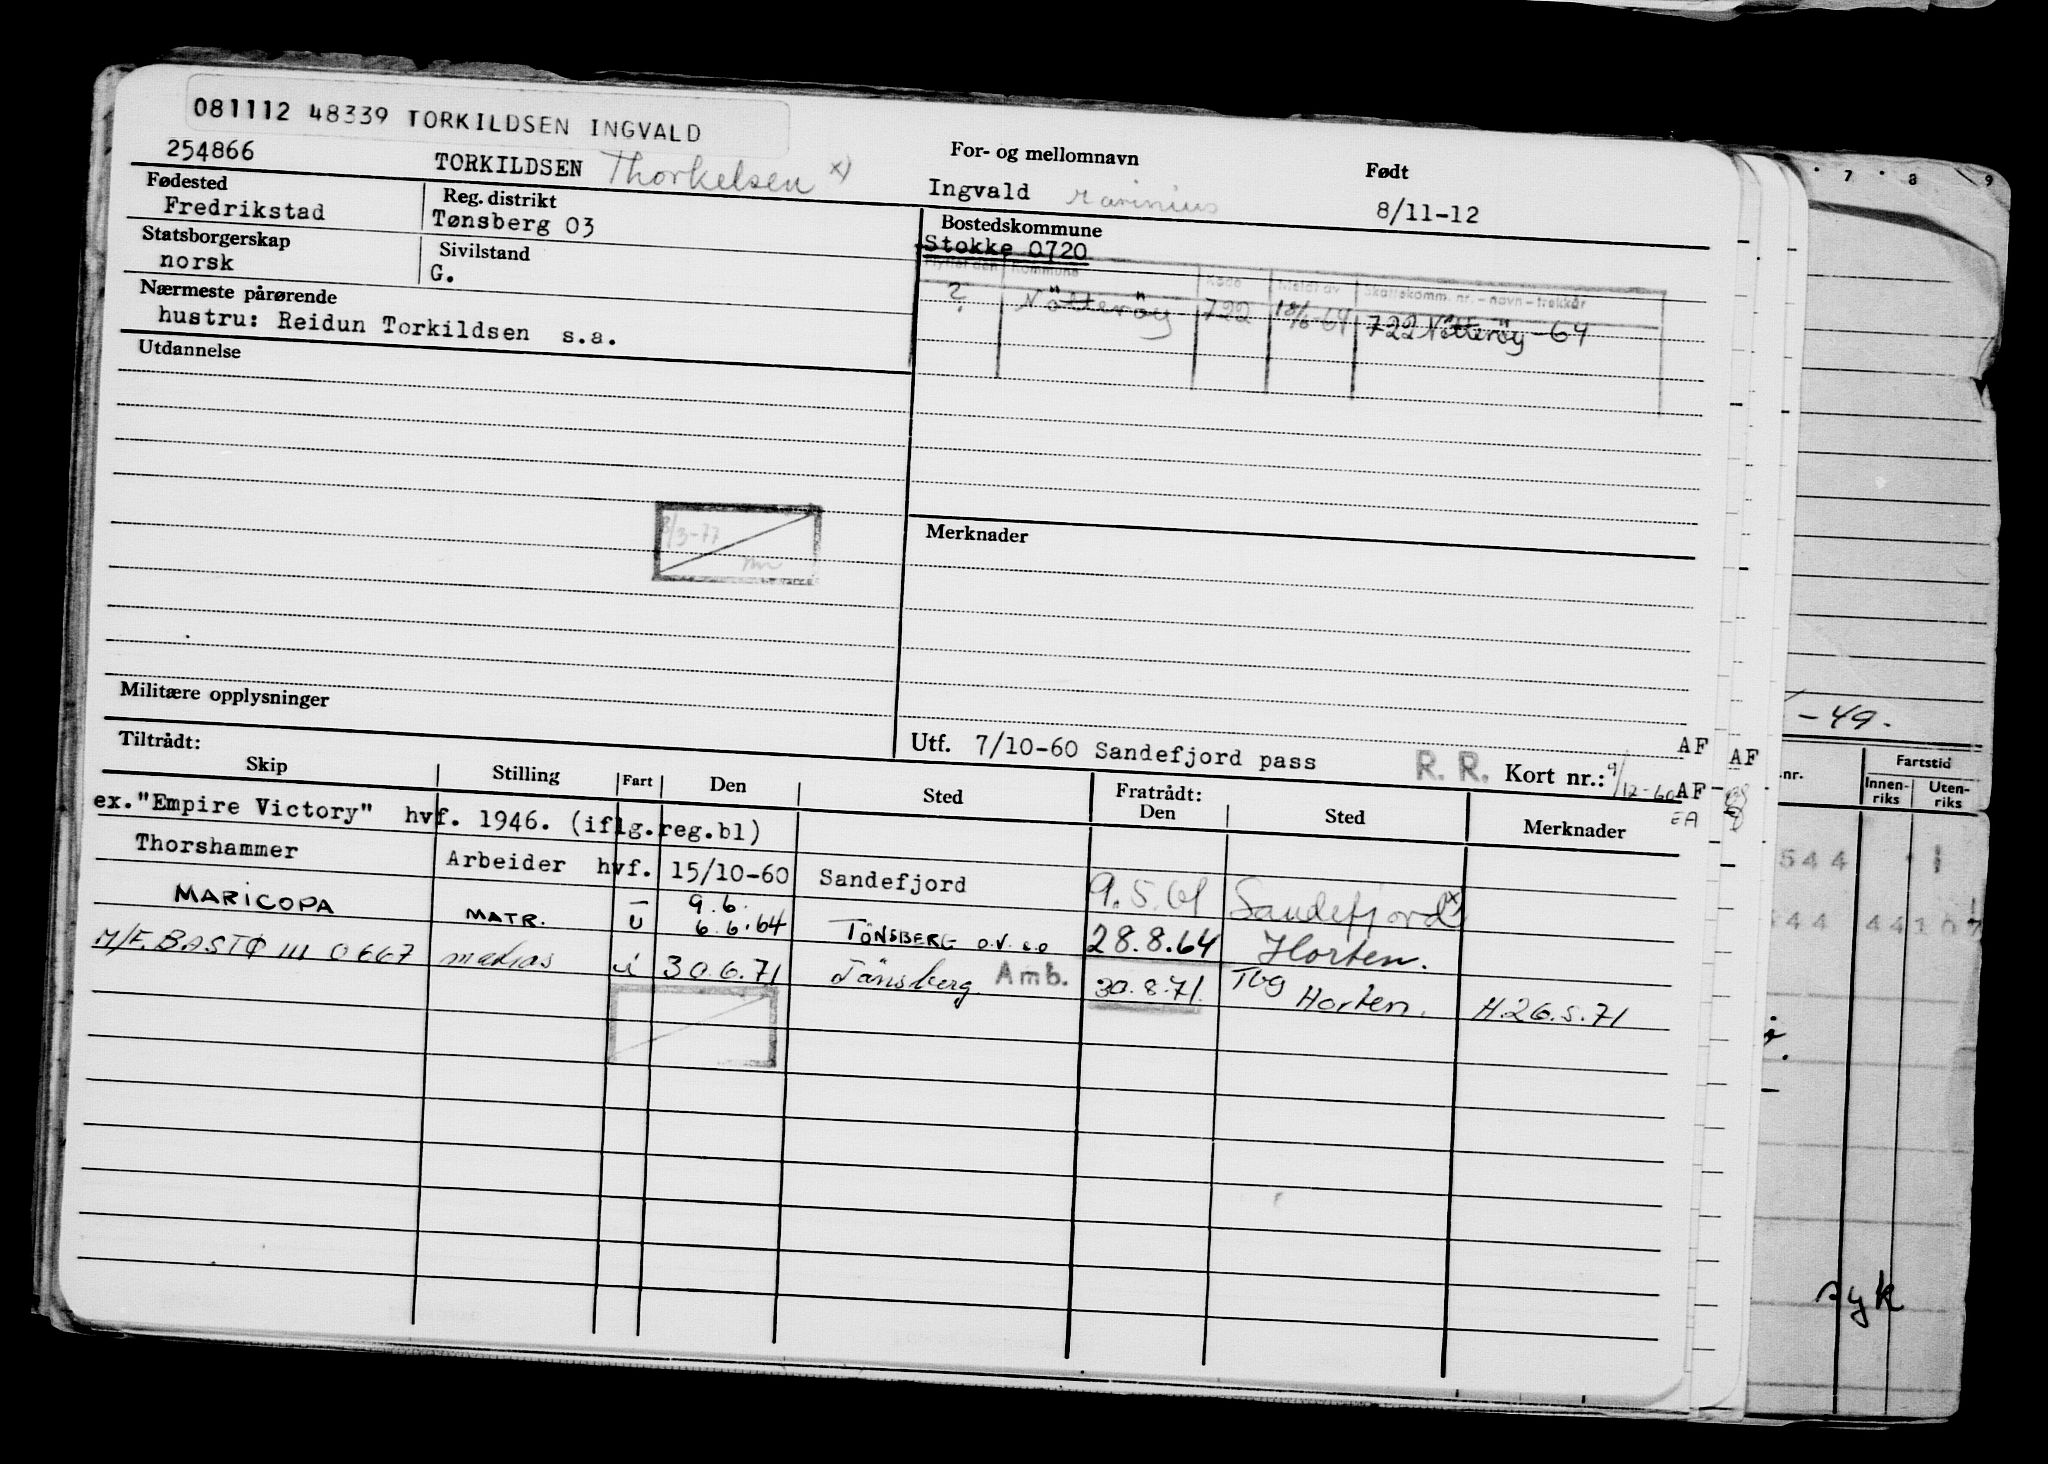 081112 48339 TORKILDSEN INGVALD
254866 TORKILDSEN Thorkelsen x) For- og mellomnavn Født
Ingvald Marinius 8/11-12
Fødested Reg. distrikt Bostedskommune
Fredrikstad Tønsberg 03 Stokke 0720
Statsborgerskap Sivilstand Flyttet den Kommune Kode Meldt av Skattekomm. nr. - navn - trekkår
norsk G. ? Nötteröy 722 722 Nötteröy - 64
Nærmeste pårørende
hustru: Reidun Torkildsen s.a.
Utdannelse
8/3-77
Merknader
Militære opplysninger
Utf. 7/10-60 Sandefjord pass R. R. Kort nr.: 9/12-60 AF
AF
AF
EA
Tiltrådt: Fratrådt:
Skip Stilling Fart Den Sted Den Sted Merknader
ex."Empire Victory" hvf. 1946. (iflg.reg.bl)
Thorshammer Arbeider hvf. 15/10-60 Sandefjord 9.5.61 Sandefjord x)
MARICOPA MATR. U 9.6. 6.6.64 TÖNSBERG 28.8.64 Horten.
M/F. BASTØ III 0667 matros i 30.6.71 Tönsberg Amb. 30.8.71. Tbg Horten. H.26.5.71
7 8 9
-49.
nr. Fartstid
Innenriks Utenriks
544 1
544 44107
syk